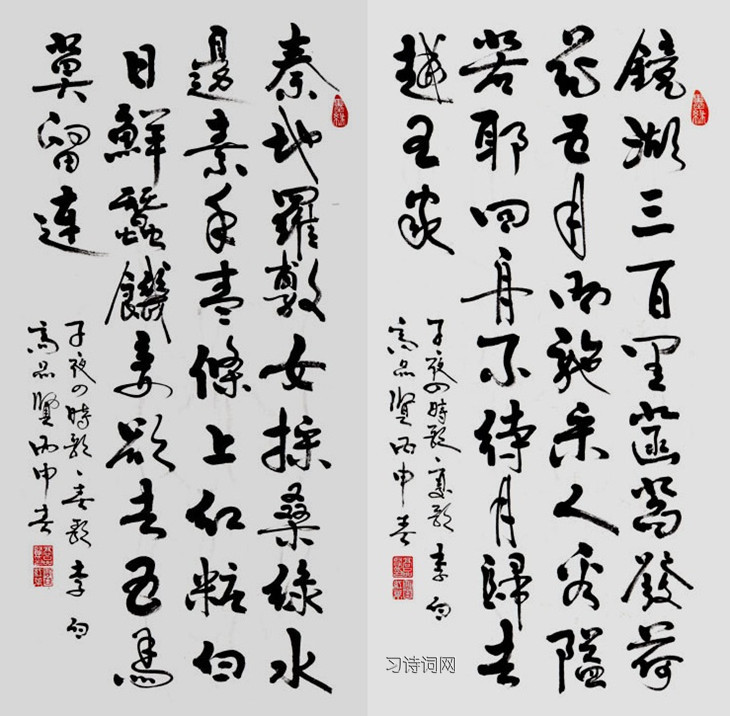 鏡湖三百里菡萏發荷
花五月西施采人看隘
若耶回舟不待月歸去
越王家
子夜四時歌、夏歌 李白
高品賢丙申春
秦地羅敷女採桑綠水
邊素手青條上紅粧白
日鮮蠶饑妾欲去五馬
莫留連
子夜四時歌、春歌 李白
高品賢丙申春
习诗词网